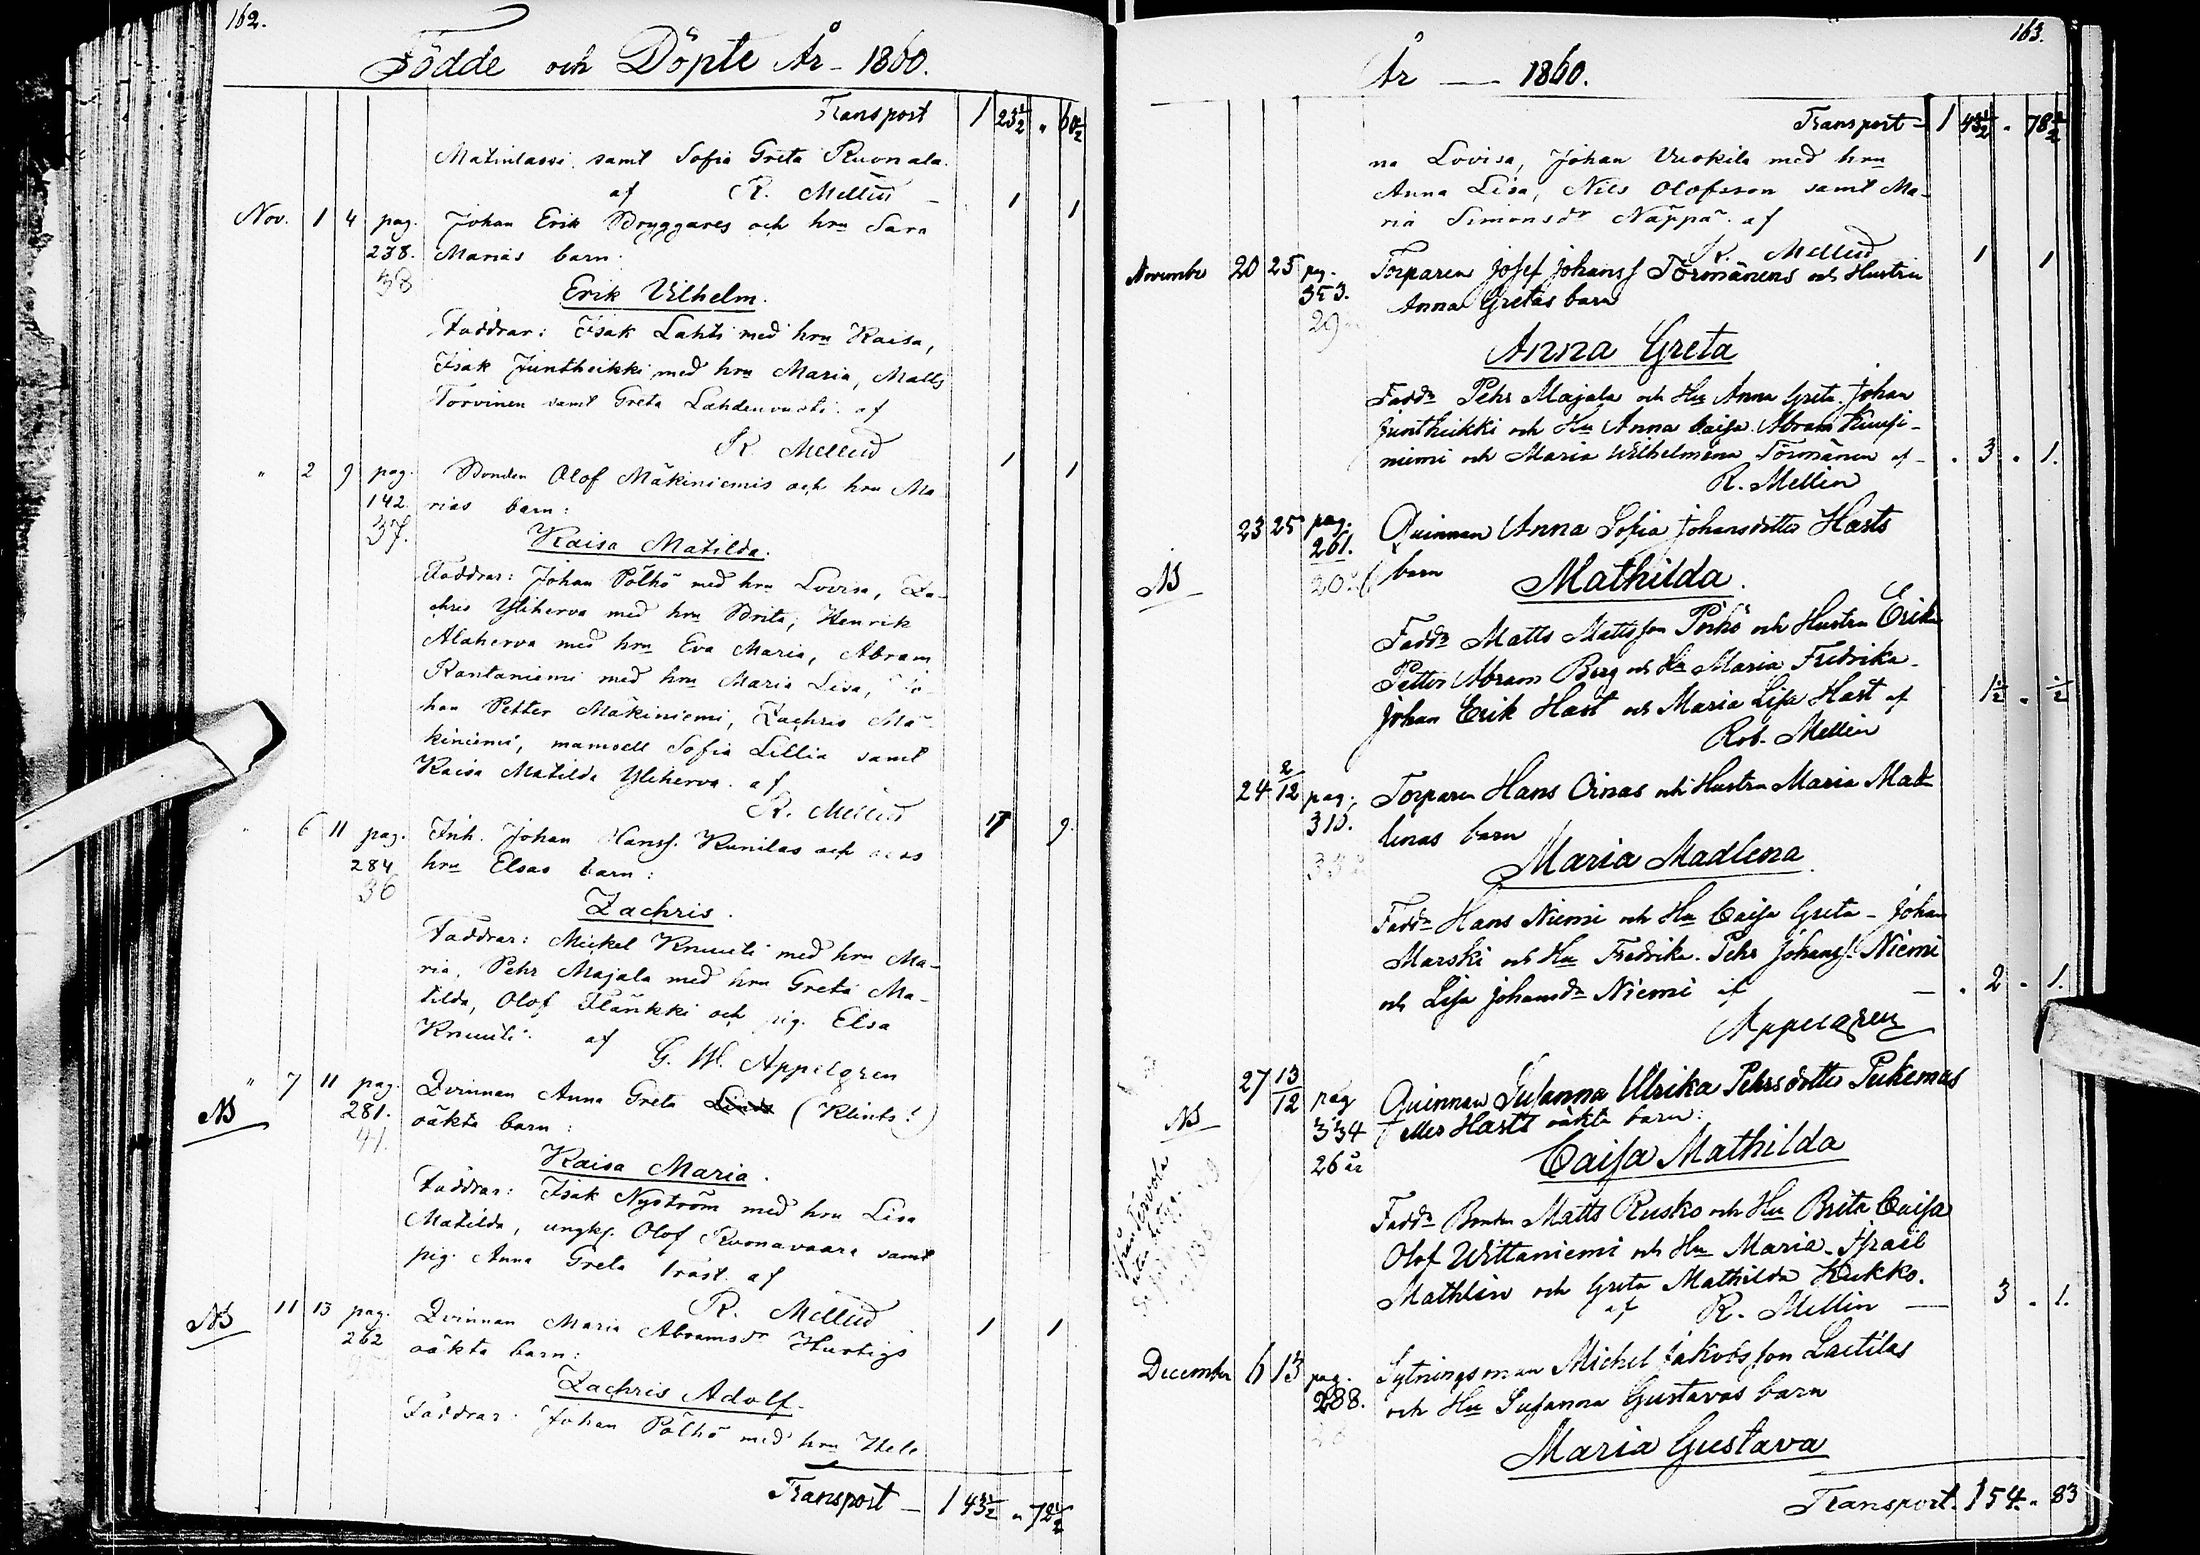 162.
Födde och Döpte År - 1860.
Transport 1 23½ " 60½
Matinlassi samt Sofia Greta Ruonala.
af R. Mellin – 1 1
Nov. 1 4 pag. Johan Erik Bryggares och hru Sara
238. Marias barn:
38
Erik Vilhelm.
Faddrar: Isak Lahti med hru Kaisa,
Isak Juntheikki med hru Maria, Matts
Torvinen samt Greta Lahdenvuoti. af
R. Mellin 1 1
" 2 9 pag. Bonden Olof Mäkiniemis och hru Ma-
142. rias barn:
37.
Kaisa Matilda.
Faddrar: Johan Pölhö med hru Lovisa, Za-
chris Yliherva med hru Brita, Henrik
Alaherva med hru Eva Maria, Abram
Rantaniemi med hru Maria Lisa, Jo-
han Petter Mäkiniemi, Zachris Mä-
kiniemi, mamsell Sofia Lillia samt
Kaisa Matilda Yliherva. af
R. Mellin 17 9.
" 6 11 pag. Inh. Johan Hanss. Kunilas och dess
284 hru Elsas barn:
36
Zachris.
Faddrar: Mickel Knuuti med hru Ma-
ria, Pehr Majala med hru Greta Ma-
tilda, Olof Flänkki och pig. Elsa
Knuuti. af
G. W. Appelgren
" 7 11 pag. Qvinnan Anna Greta (Klints!)
NB 281. oäkta barn:
41.
Kaisa Maria.
Faddrar: Isak Nyström med hru Lisa
Matilda, ungk. Olof Ruonavaara samt
pig. Anna Greta Träst. af
R. Mellin 1 1
NB 11 13 pag. Qvinnan Maria Abramsdr Hurtigs
262 oäkta barn:
Zachris Adolf.
Faddrar: Johan Pölhö med hru Hele
Transport – 1 43½ " 72½
163.
År — 1860.
Transport – 1 43½ " 78½
na Lovisa, Johan Vuokila med hru
Anna Lisa, Nils Olofsson samt Ma-
ria Simonsdr Näppä. af
R. Mellin 1 1
November 20 25 pag. Torparen Josef Johanss Törmänens och Hustru
353. Anna Gretas barn
29
Anna Greta
Faddr Pehr Majala och Hu Anna Greta. Johan
Juntheikki och Hu Anna Caisa. Abram Kuusi-
niemi och Maria Wilhelmina Törmänen af – " 3 " 1.
R. Mellin
23 25 pag. Quinnan Anna Sofia Johansdotter Hasts
261. barn
NB 20 år
Mathilda.
Faddr Matts Mattsson Pörhö och Hustru Erika
Petter Abram Berg och Hu Maria Fredrika –
Johan Erik Hast och Maria Lisa Hast af 1½ " ½
Rob. Mellin
24 2/12 pag. Torparen Hans Oinas och Hustru Maria Mad
310. lenas barn
Maria Madlena
Faddr Hans Niemi och Hu Caisa Greta – Johan
Marski och Hu Fredrika. Pehr Johanss. Niemi
och Lisa Johansdr Niemi af — " 2 " 1.
Appelgren
27 13/12 pag Quinnan Susanna Ulrika Pehrsdotter Peikemas
NB 334 eller Hasts oäkta barn:
26 år
Caisa Mathilda
från Tervola
Faddr Bonden Matts Rusko och Hu Brita Caisa
Olof Wittaniemi och Hu Maria – Israel
Mathlin och Greta Mathilda Kukko.
af R. Mellin — 3 " 1.
December 6 13 pag. Sytningsman Michel Jakobsson Laitilas
288. och Hu Susanna Gustavas barn
Maria Gustava
Transport. 1 54 " 83